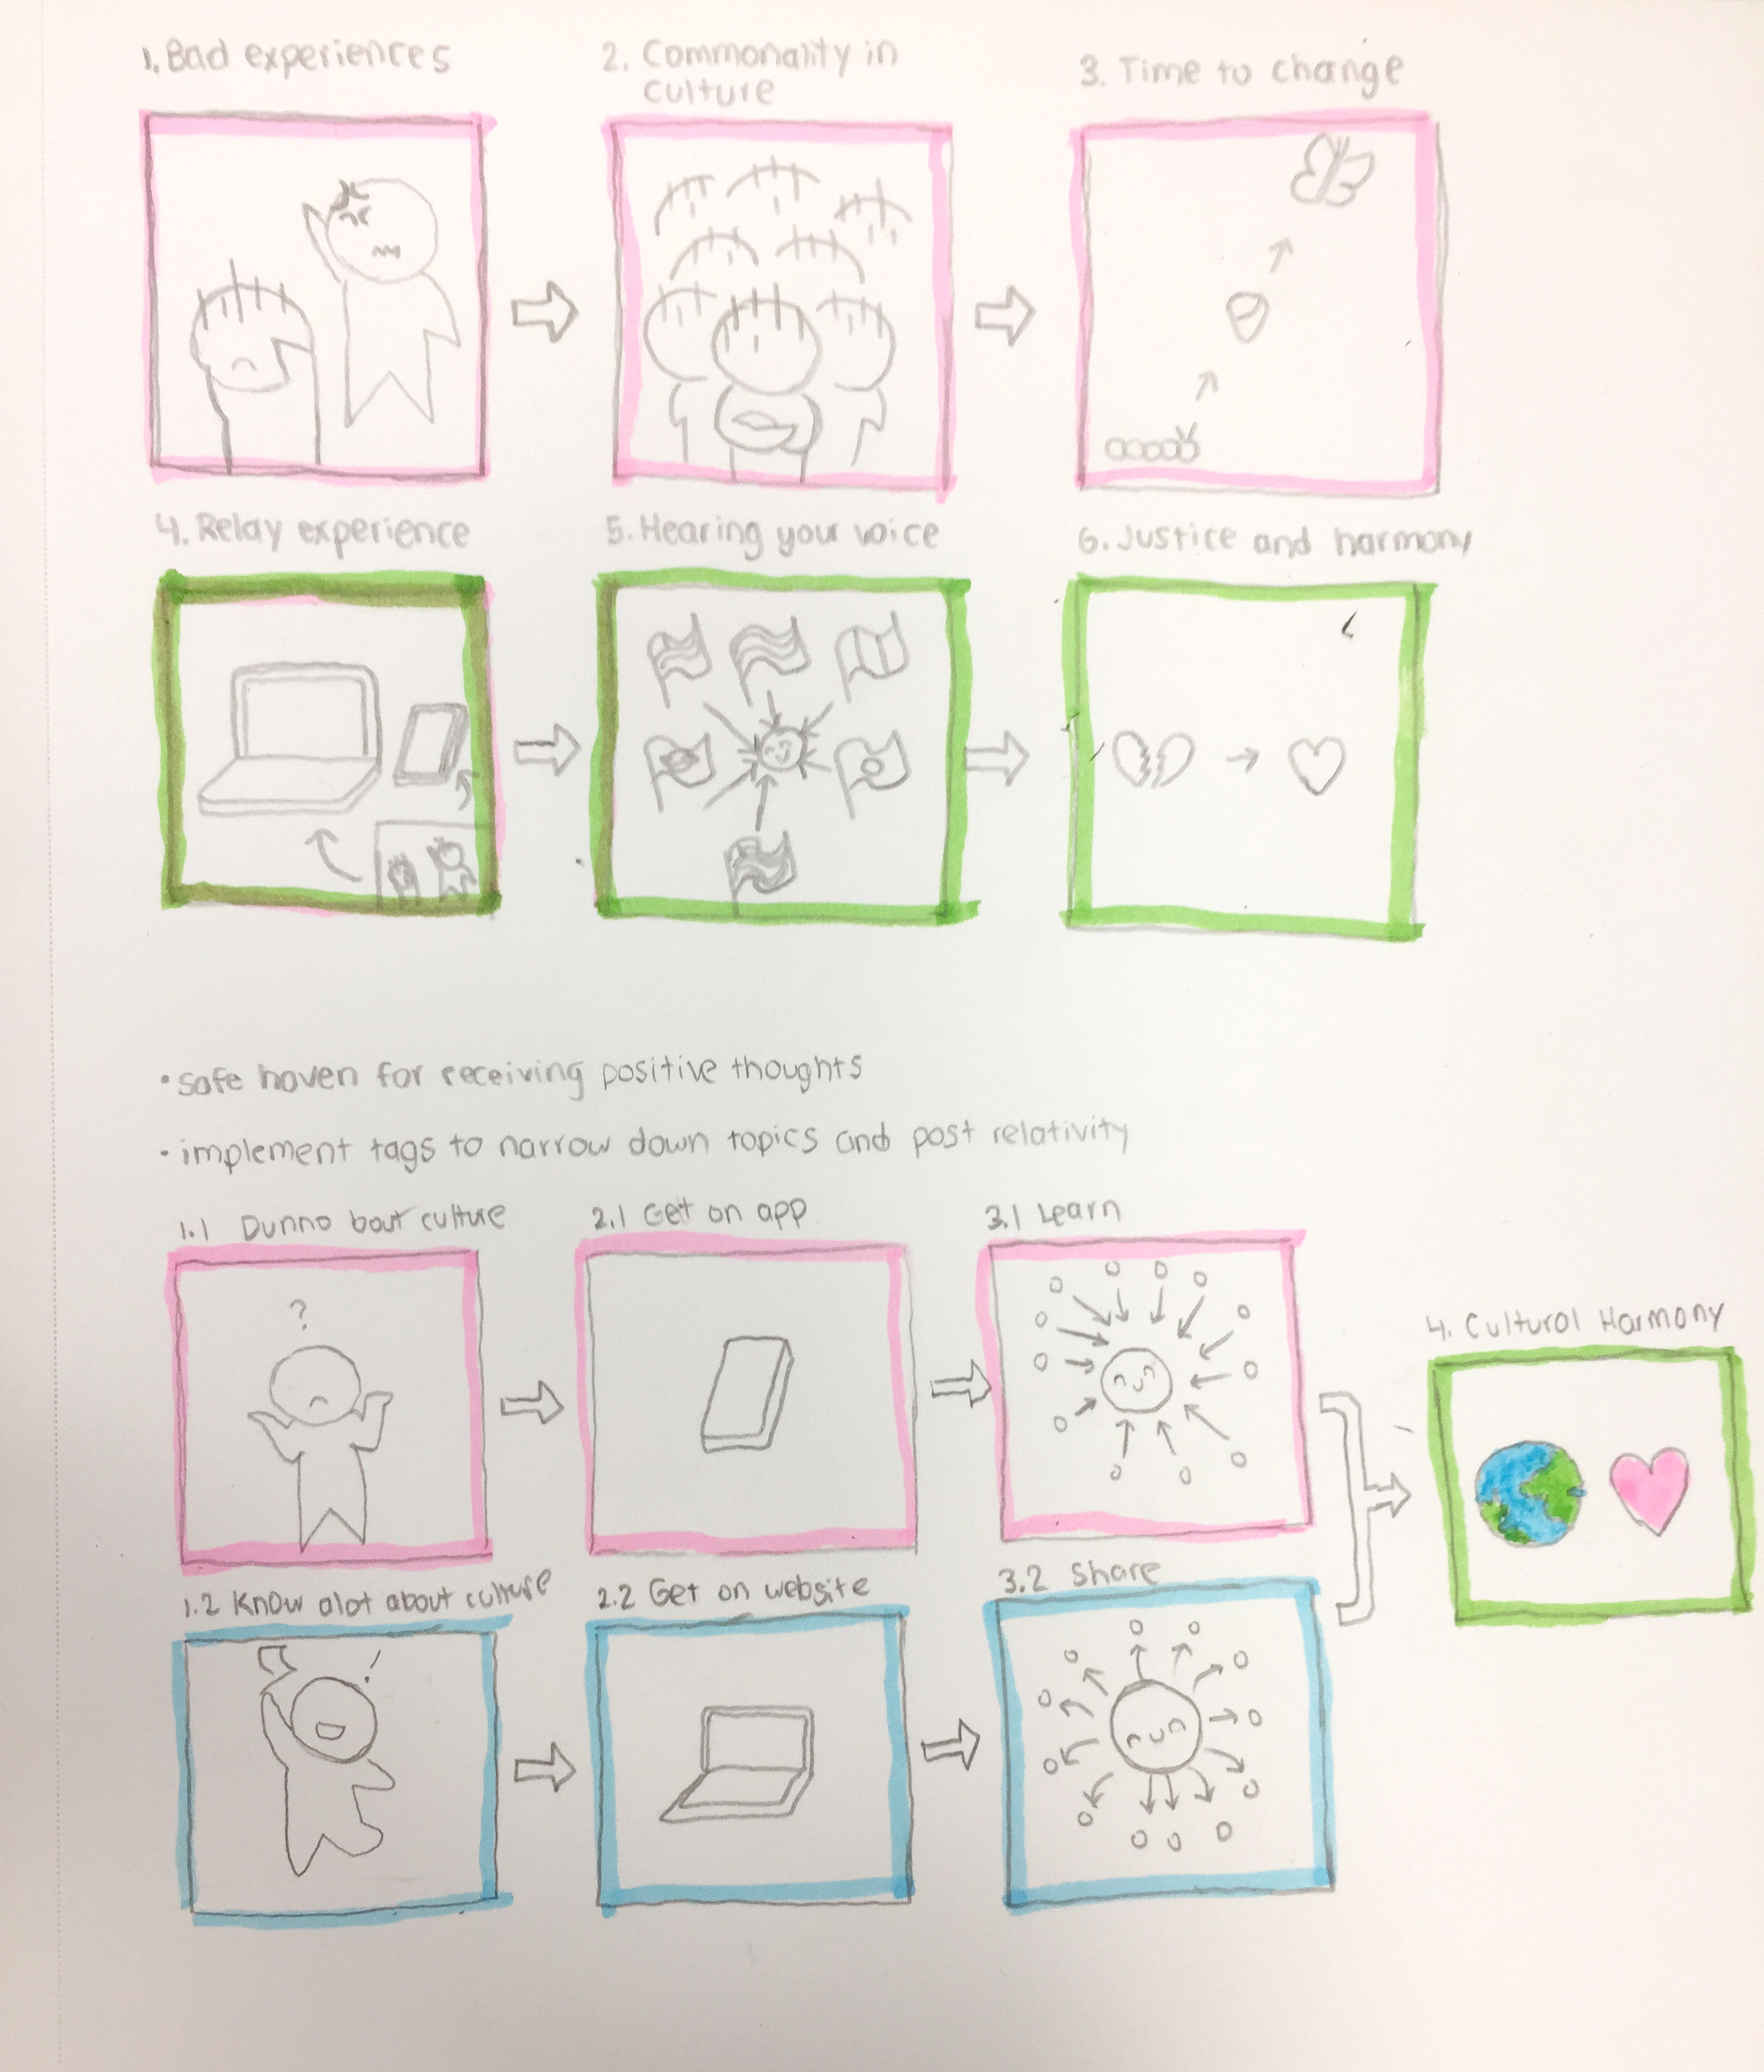 1. Bad experiences
2. Commonality in
culture
3. Time to change
4. Relay experience
5. Hearing your voice
6. Justice and harmony
• safe haven for receiving positive thoughts
• implement tags to narrow down topics and post relativity
1.1 Dunno bout culture
2.1 Get on app
3.1 Learn
?
4. Cultural Harmony
1.2 Know alot about culture
2.2 Get on website
3.2 Share
!